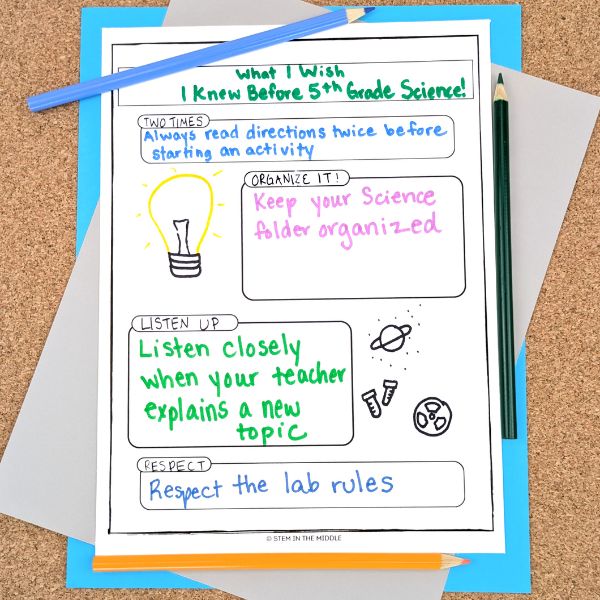 What I Wish
I Knew Before 5th Grade Science!
TWO TIMES
Always read directions twice before
starting an activity
ORGANIZE IT!
Keep your Science
folder organized
LISTEN UP
Listen closely
when your teacher
explains a new
topic
RESPECT
Respect the lab rules
© STEM IN THE MIDDLE